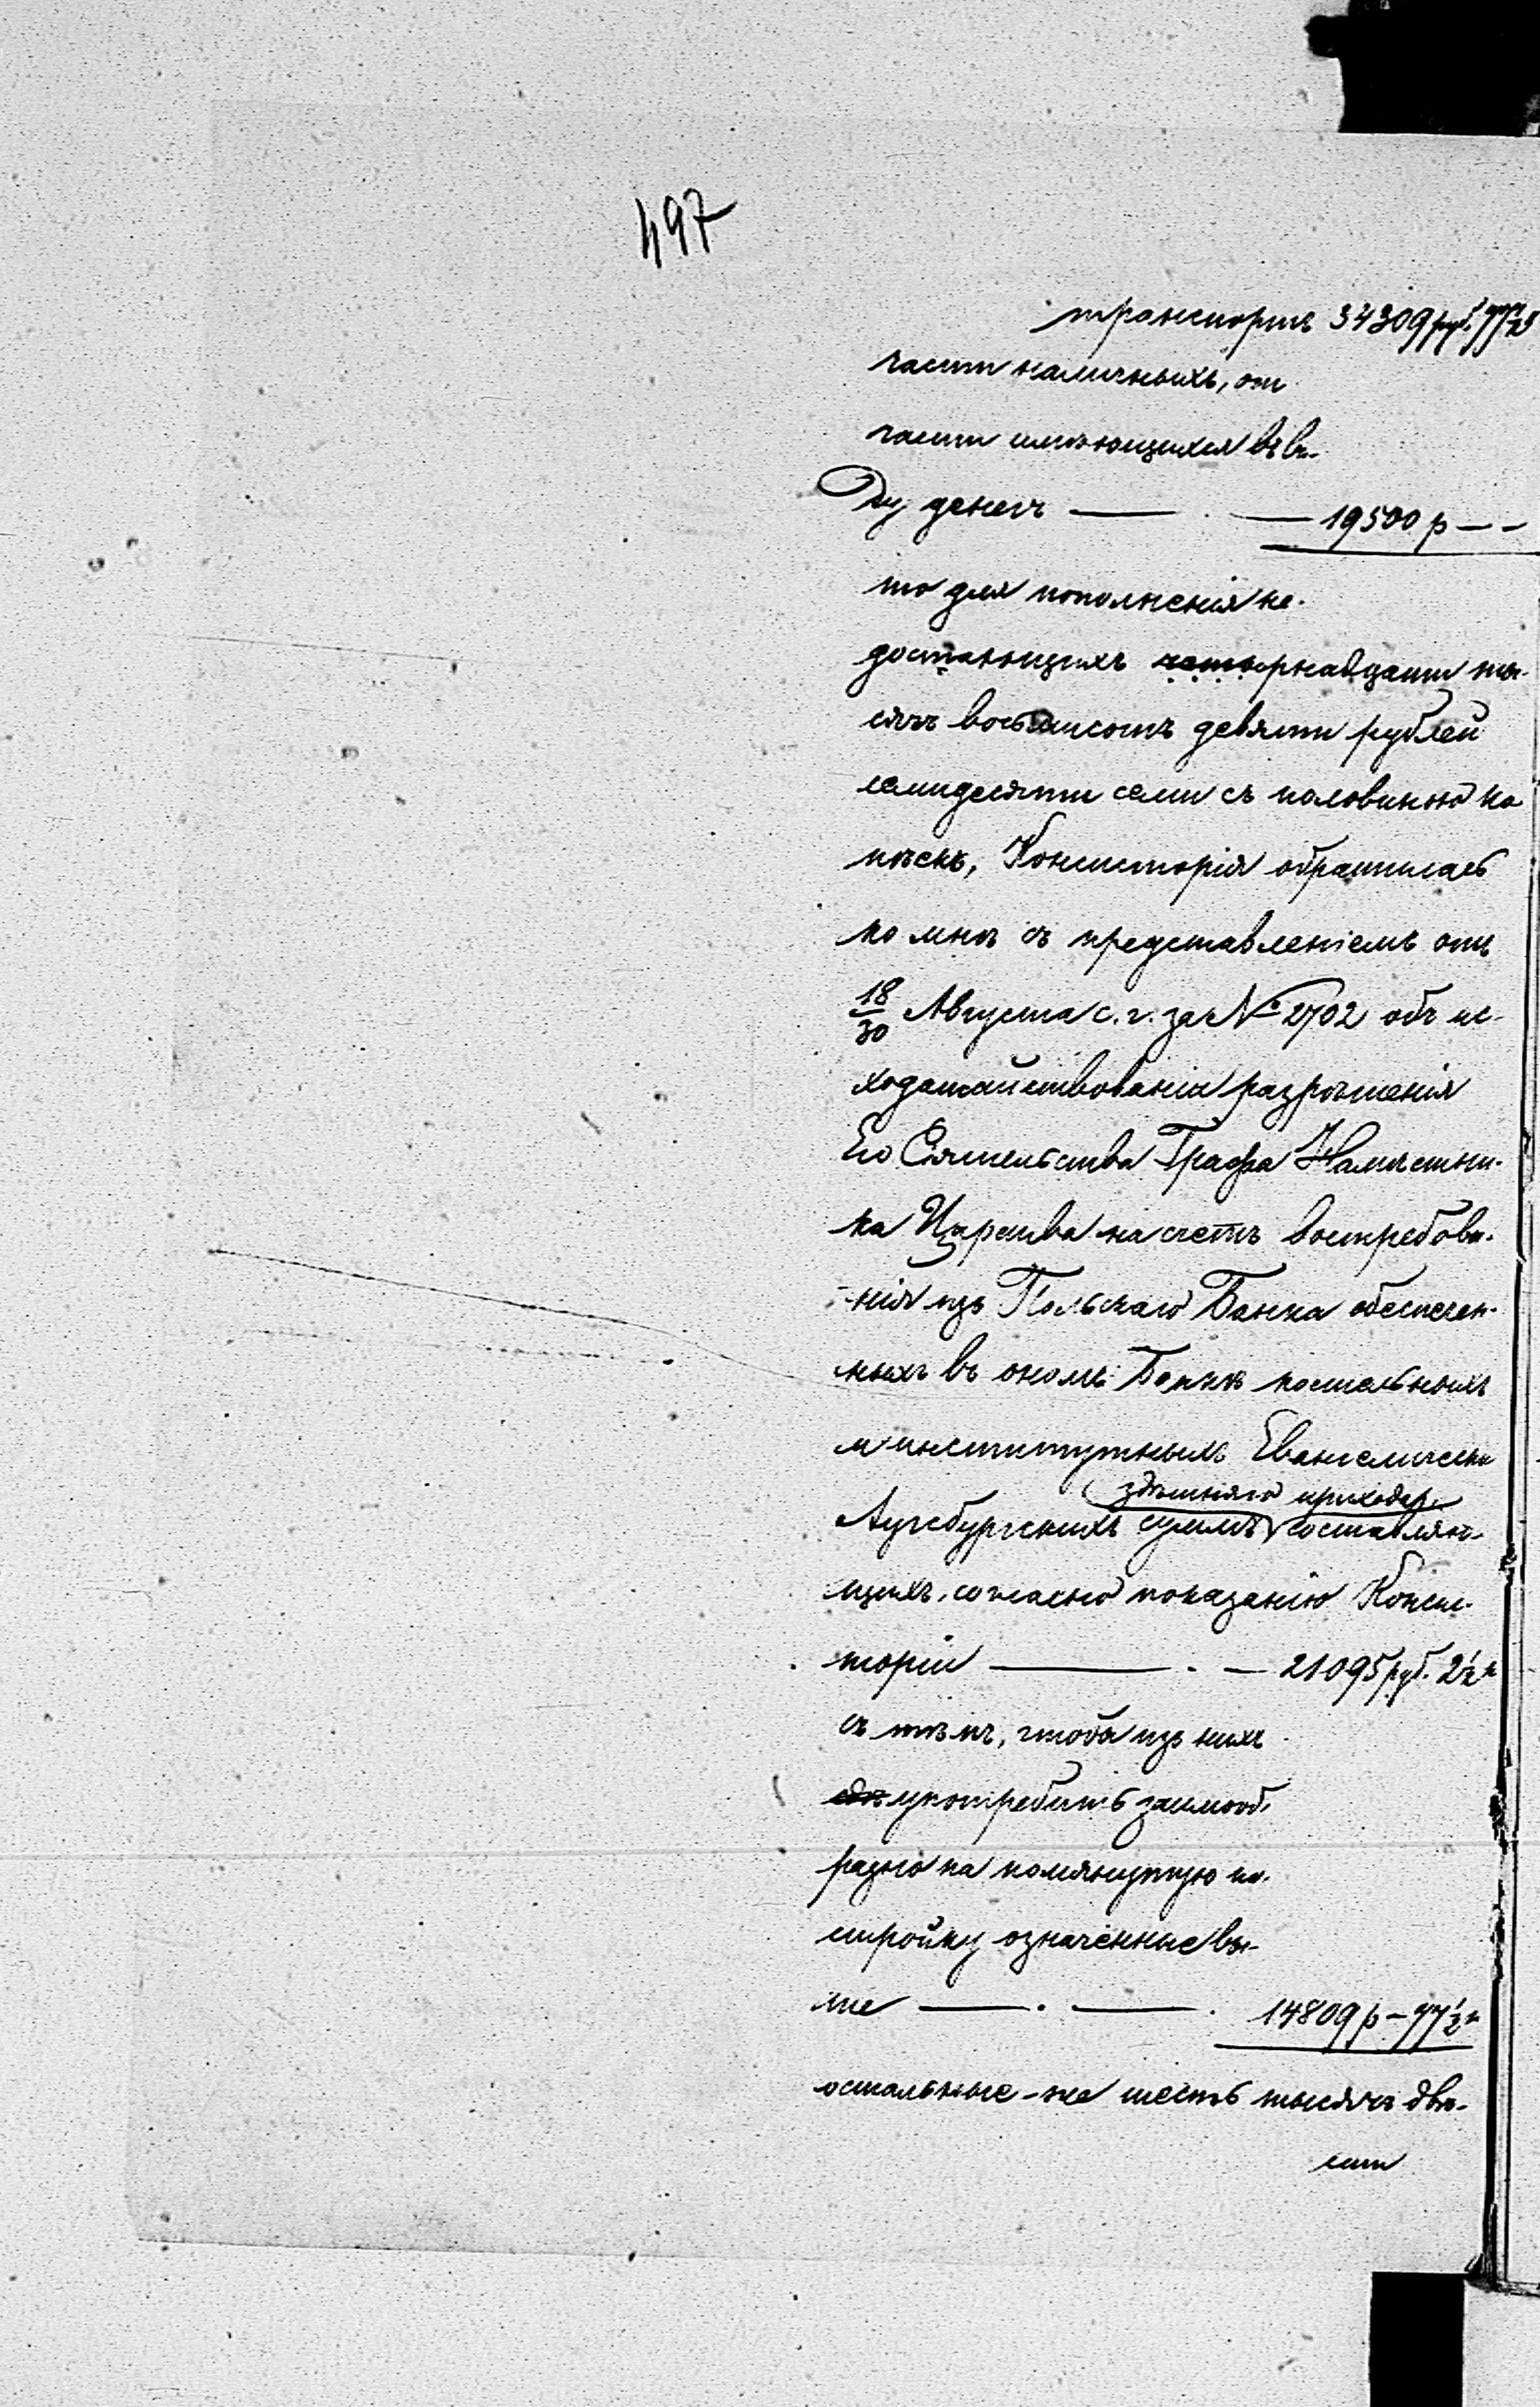 497
транспортъ 34309 руб. 77½
части наличныхъ, от
части имѣющихся въ ви-
ду денегъ — . — 19500 р — -
то для пополненія не-
достающихъ четырнадцати ты-
сячъ восьмисотъ девяти рублей
семидесяти семи съ половиною ко
пѣекъ, Консисторія обратилась
ко мнѣ съ представленіемъ отъ
18/30 Августа с. г. за № 2702 объ ис-
ходатайствованіи разрѣшенія
Его Сіятельства Графа Намѣстни-
ка Царства на счетъ востребова-
-нія изъ Польскаго Банка обезпечен-
ныхъ въ ономъ Банкѣ костельныхъ
и институтныхъ Евангелическо
здѣшняго прихода
Аугсбургскихъ суммъ составляю-
щихъ, согласно показанію Конси-
торіи — . — 21095 руб. 2½ к
съ тѣмъ, чтобы изъ нихъ
употребить заимооб-
разно на помянутую по-
стройку означенные вы-
ше — . — . 14809 р — 77½ к
остальные-же шесть тысячъ двѣ-
сти